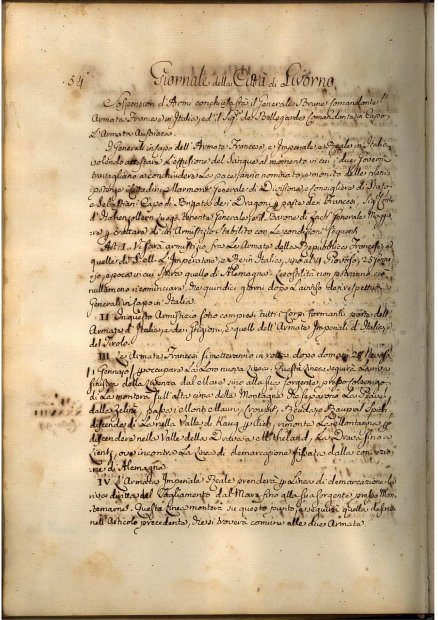 54
Giornale della Città di Livorno
Sospensione d'Armi conchiusa fra il Generale Brune Comandante l'
Armata Francese in Italia, ed il Sig. de Bellegarde Comandante in Capo
L'Armata Austriaca.
I Generali in capo dell'Armata Francese, e Imperiale e Reale in Italia,
volendo arrestare L'effusione del Sangue al momento in cui i due Governi
travagliano a conchiudere la pace, anno nominato, e munito delle pleni-
potenze i Cittadini Marmont Generale di Divisione, e Consigliere di Stato
e Sebastiani Capo di Brigata dei Dragoni per parte dei Francesi,
d'Hohenzollern Luogo Tenente Generale, ed il Barone di Zach Generale Maggio-
re, e trattare di un Armistizio stabilito con Le condizioni seguenti
Art. I. Vi sarà armistizio fra Le Armate della Repubblica Francese, e
quelle di S. M. L'Imperatore, e Re in Italia, sino al 4 Piovoso, 25 Gen-
najo, epoca in cui spira quello di Alemagna. Le ostilità non potranno
nullameno ricominciare, che quindici giorni dopo L'avviso dei rispettivi
Generali in capo in Italia.
II In questo Armistizio sono compresi tutti i Corpi formanti parte dell'
Armate d'Italia, e dei Grigioni, e quelli dell'Armate Imperiali d'Italia, e
del Tirolo.
III Le Armate Francesi si metteranno in rotta dopo domani
11 Gennajo per occupare La Loro nuova Linea. Questa Linea seguirà La riva
sinistra della Livenza dal Mare sino alla sua sorgente presso
di La monterà sull'alta cima delle Montagne che separano La Piave
dalla Zelina, passa i Monti
discende di La nella Valle di rimonte Le Montagne, e
discendere nella Valle della Drava a La Drava fino a
Lientz, ove incontra La Linea di demarcazione fissata dalla convenzio-
ne di Alemagna
IV L'Armata Imperiale Reale prenderà per Linea di demarcazione La
riva diritta del Tagliamento dal Mare fino alla sua sorgente presso Mon-
temauro. Questa linea monterà su questo punto, e seguirà quella definita
nell'Articolo precedente, che si troverà comune alle due Armate